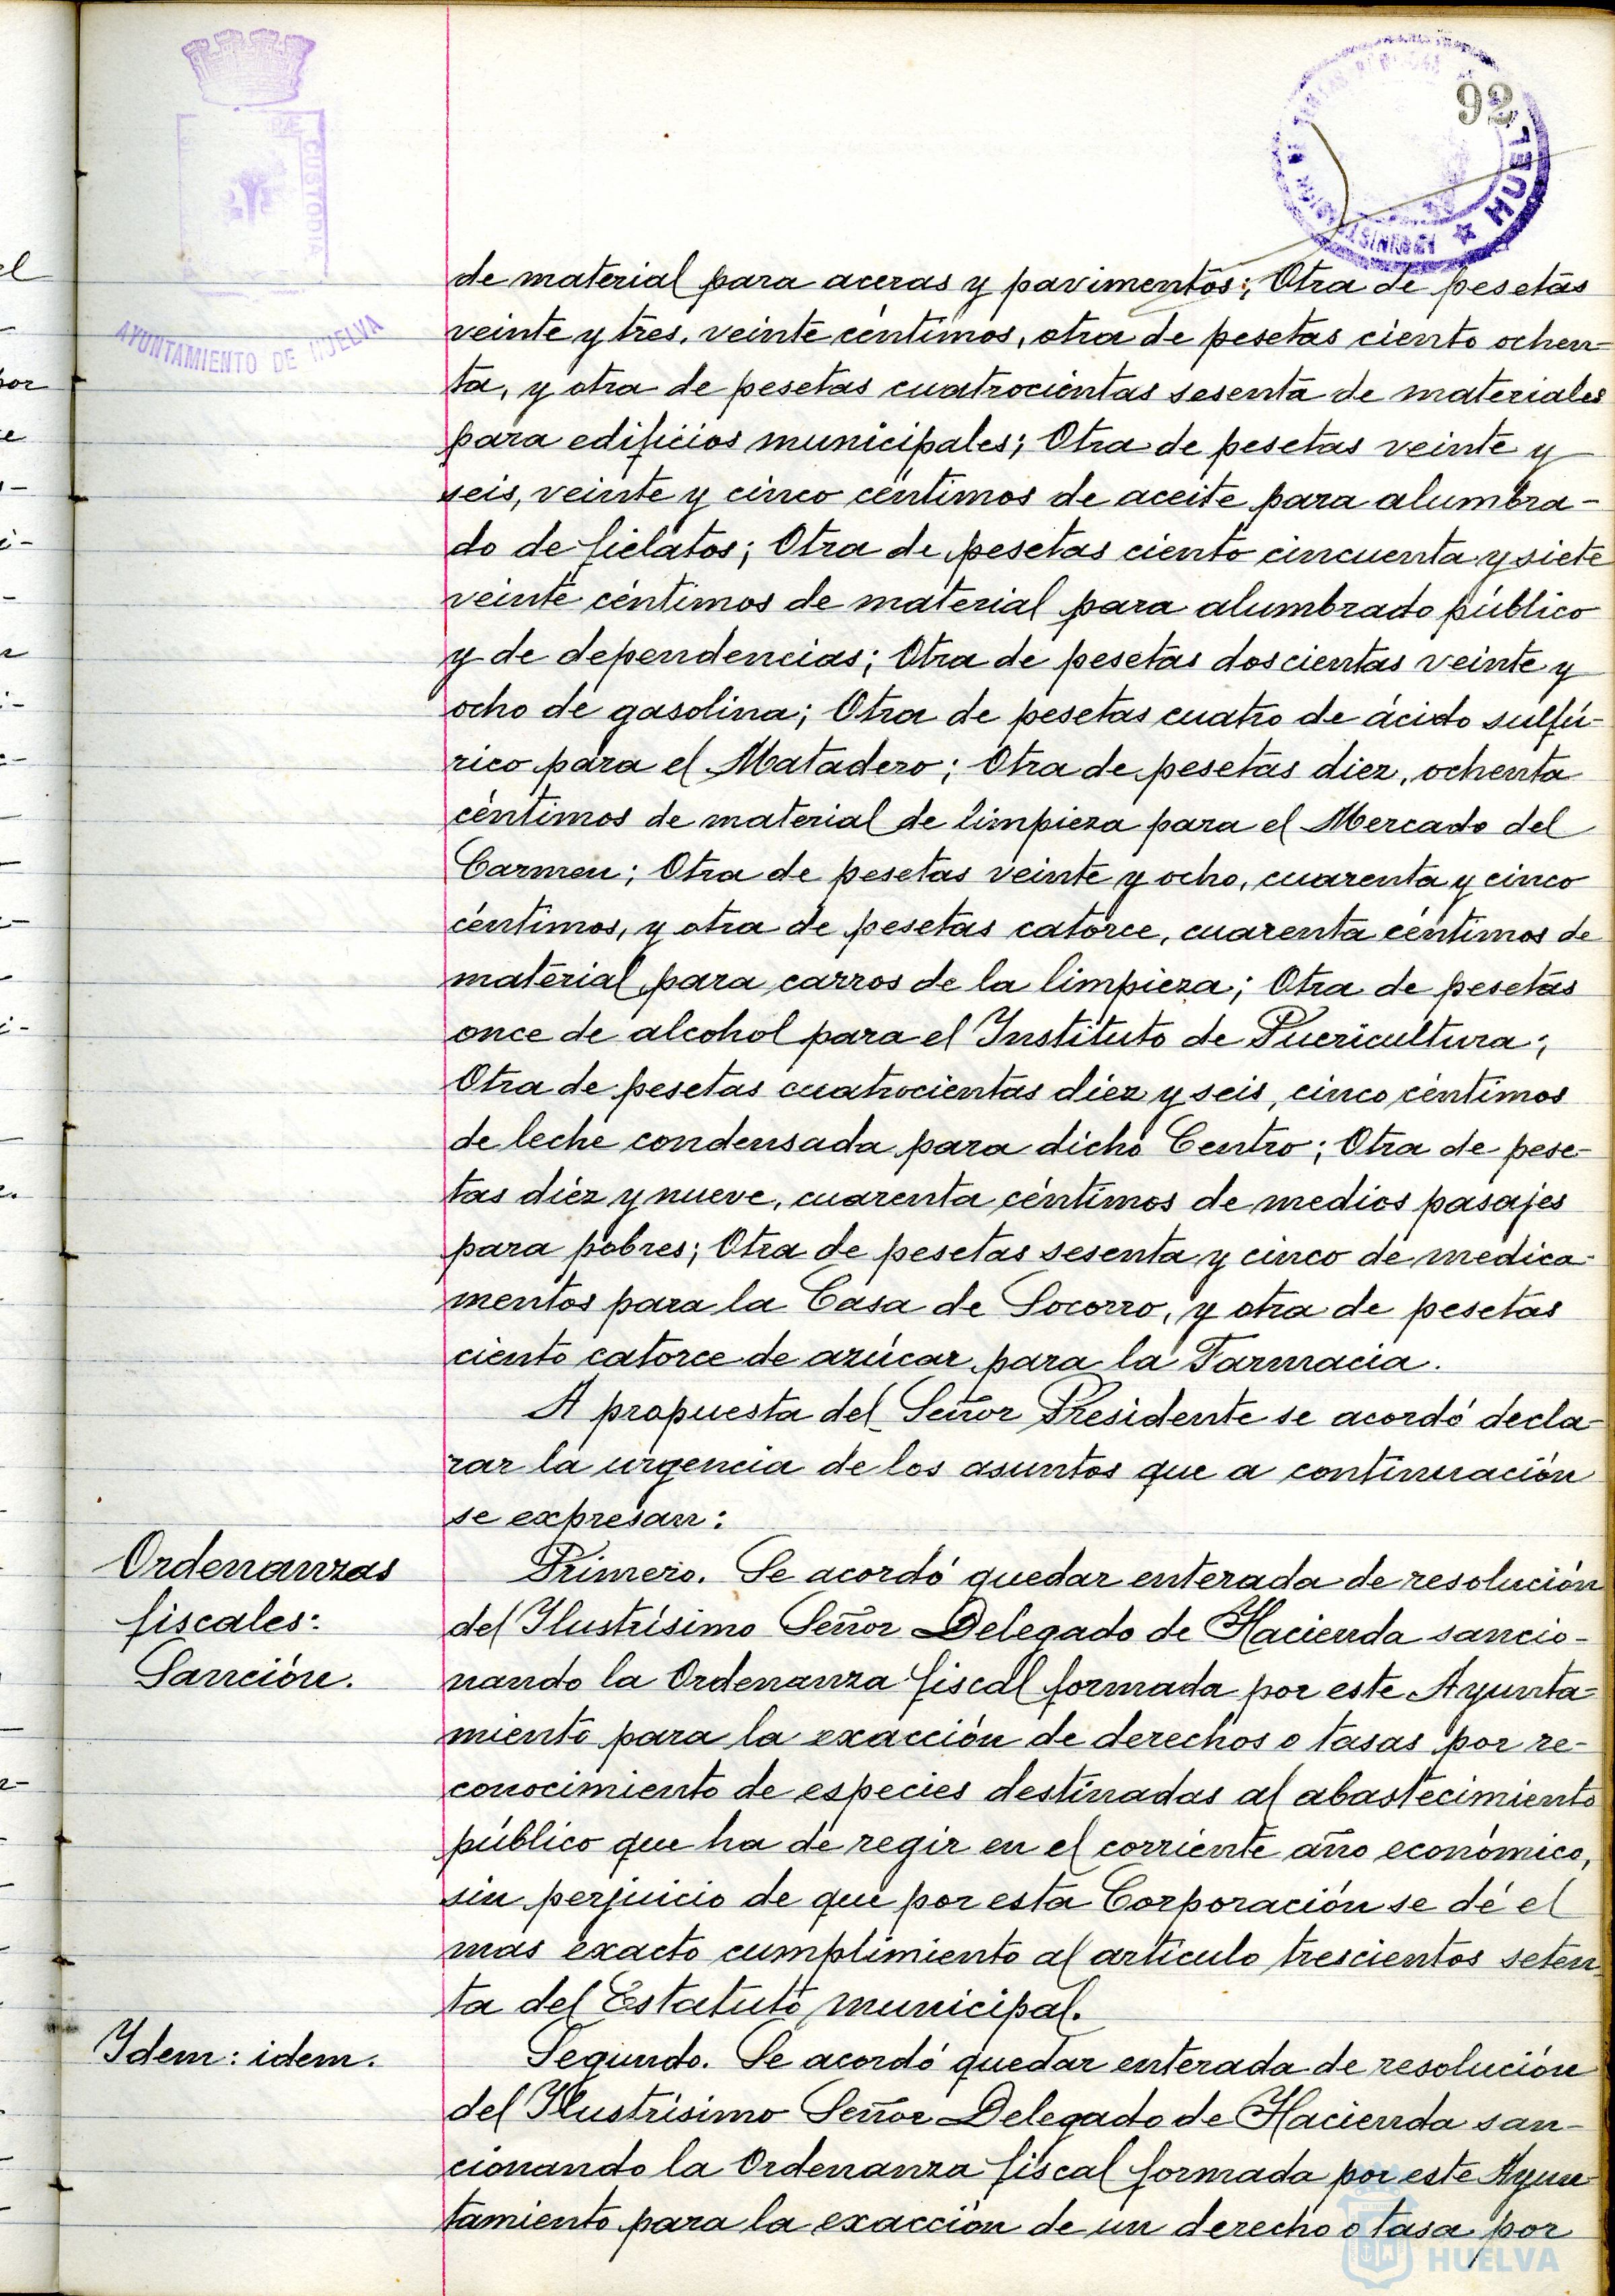 92
HUEL
CUSTODIA
AYUNTAMIENTO DE HUELVA
de material para aceras y pavimentos; Otra de pesetas
veinte y tres, veinte céntimos, otra de pesetas ciento ochen-
ta, y otra de pesetas cuatrocientas sesenta de materiales
para edificios municipales; Otra de pesetas veinte y
seis, veinte y cinco céntimos de aceite para alumbra-
do de fielatos; Otra de pesetas ciento cincuenta y siete
veinte céntimos de material para alumbrado público
y de dependencias; Otra de pesetas doscientas veinte y
ocho de gasolina; Otra de pesetas cuatro de ácido sulfú-
rico para el Matadero; Otra de pesetas diez, ochenta
céntimos de material de limpieza para el Mercado del
Carmen; Otra de pesetas veinte y ocho, cuarenta y cinco
céntimos, y otra de pesetas catorce, cuarenta céntimos de
material para carros de la limpieza; Otra de pesetas
once de alcohol para el Instituto de Puericultura;
Otra de pesetas cuatrocientas diez y seis, cinco céntimos
de leche condensada para dicho Centro; Otra de pese-
tas diez y nueve, cuarenta céntimos de medios pasajes
para pobres; Otra de pesetas sesenta y cinco de medica-
mentos para la Casa de Socorro, y otra de pesetas
ciento catorce de azúcar para la Farmacia.
A propuesta del Señor Presidente se acordó decla-
rar la urgencia de los asuntos que a continuación
se expresan:
Ordenanzas
fiscales:
Sanción.
Primero. Se acordó quedar enterada de resolución
del Ilustrísimo Señor Delegado de Hacienda sancio-
nando la Ordenanza fiscal formada por este Ayunta-
miento para la exacción de derechos o tasas por re-
conocimiento de especies destinadas al abastecimiento
público que ha de regir en el corriente año económico,
sin perjuicio de que por esta Corporación se dé el
mas exacto cumplimiento al artículo trescientos seten
ta del Estatuto municipal.
Idem: idem.
Segundo. Se acordó quedar enterada de resolución
del Ilustrísimo Señor Delegado de Hacienda san-
cionando la Ordenanza fiscal formada por este Ayun
tamiento para la exacción de un derecho o tasa por
HUELVA